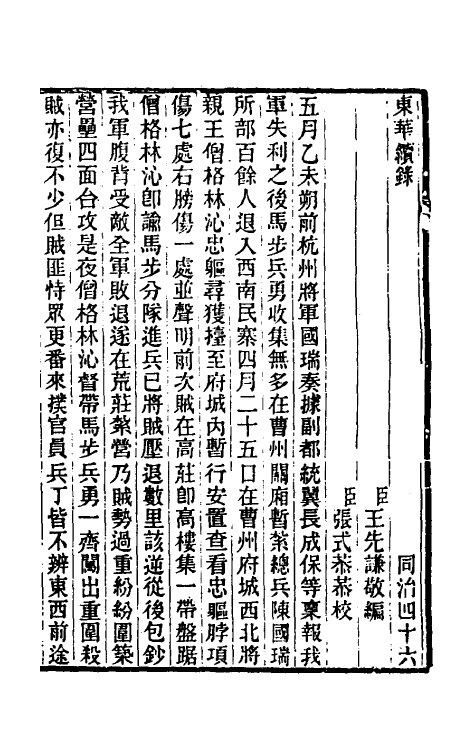 東華續錄
同治四十六
臣王先謙敬編
臣張式恭恭校
五月乙未朔前杭州將軍國瑞奏據副都統翼長成保等稟報我
軍失利之後馬步兵勇收集無多在曹州關廂暫紮總兵陳國瑞
所部百餘人退入西南民寨四月二十五日在曹州府城西北將
親王僧格林沁忠軀尋獲擡至府城內暫行安置查看忠軀脖項
傷七處右膀傷一處並聲明前次賊在高莊卽高樓集一帶盤踞
僧格林沁卽諭馬步分隊進兵已將賊壓退數里該逆從後包鈔
我軍腹背受敵全軍敗退遂在荒莊紮營乃賊勢過重紛紛圍築
營壘四面台攻是夜僧格林沁督帶馬步兵勇一齊闖出重圍殺
賊亦復不少但賊匪恃眾更番來撲官員兵丁皆不辨東西前途